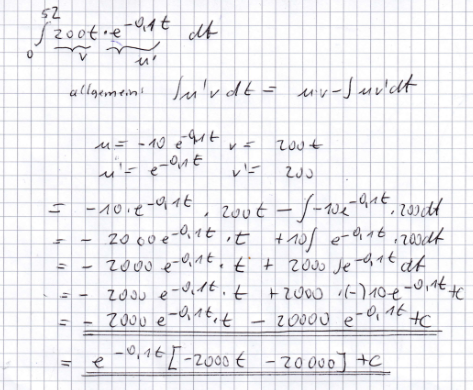 52
∫ 200t · e^-0,1t dt
0 v u'
allgemein: ∫u'v dt = uv - ∫uv'dt
u = -10 e^-0,1t v = 200t
u' = e^-0,1t v' = 200
= -10 · e^-0,1t · 200t - ∫-10e^-0,1t · 200dt
= - 2000e^-0,1t · t +10∫ e^-0,1t · 200dt
= - 2000 e^-0,1t · t + 2000 ∫e^-0,1t dt
= - 2000 e^-0,1t · t +2000 · (-)10 · e^-0,1t +c
= - 2000 e^-0,1t · t - 20000 e^-0,1t +c
= e^-0,1t [-2000t - 20000] +c